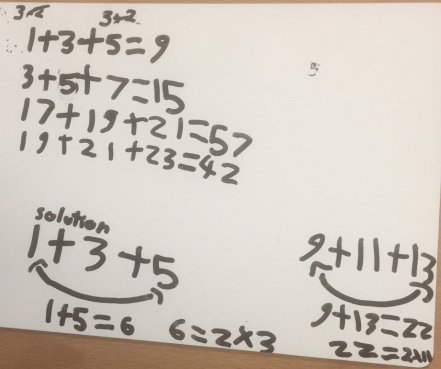 3×2
1+3+5=9
3+5+7=15
17+19+21=57
19+21+23=42
solution
1+3+5
1+5=6
6=2×3
9+11+13
9+13=22
22=2×11